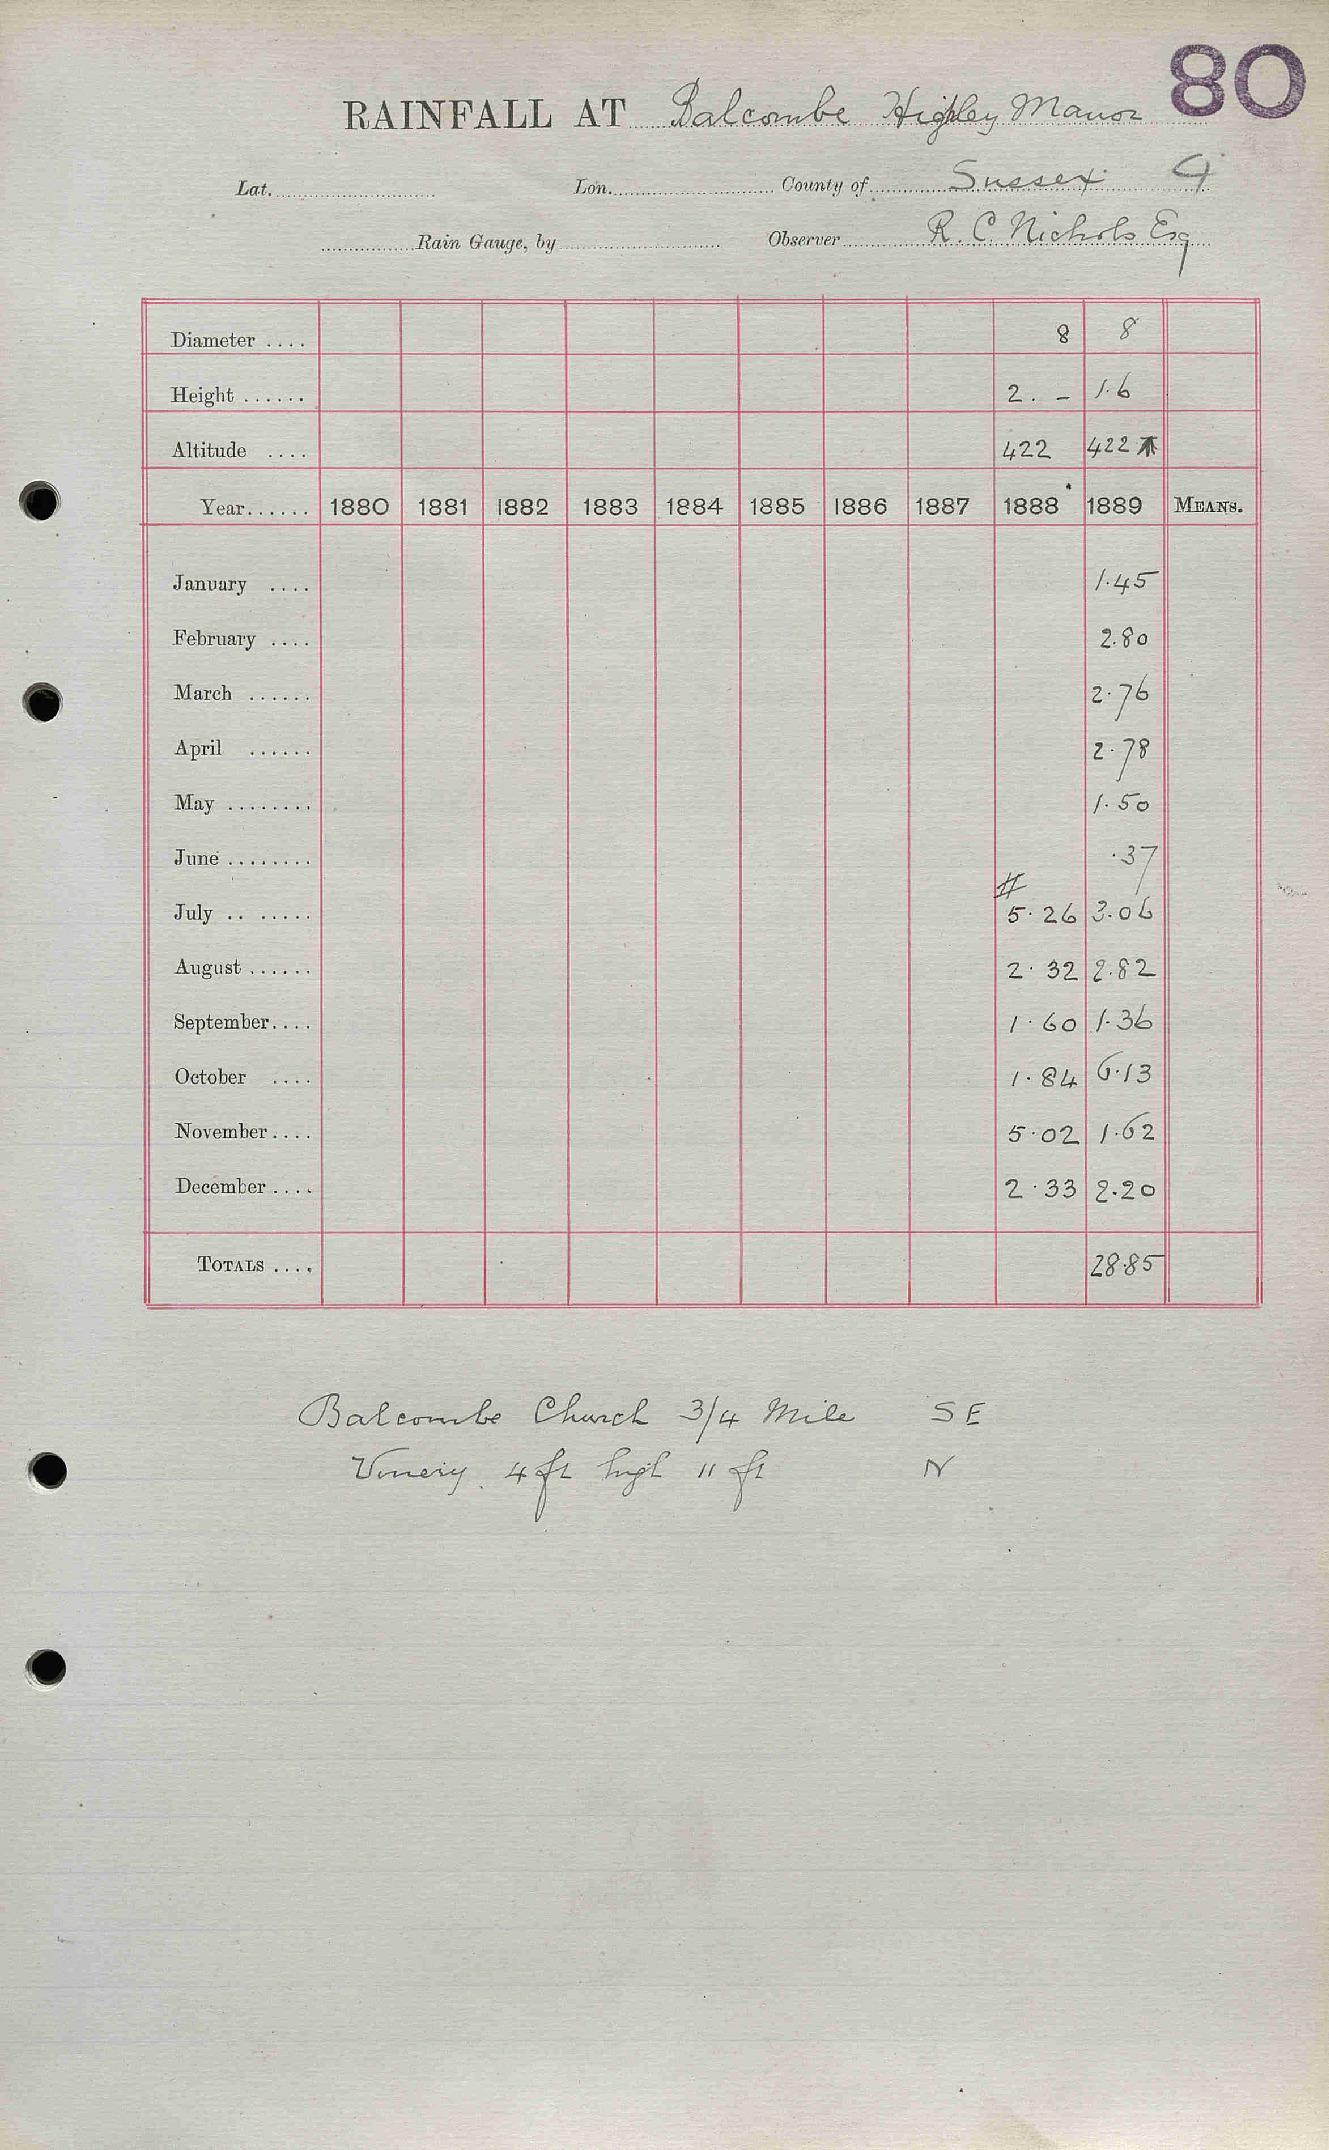 80
RAINFALL AT Balcombe Highley Manor
Lat. Lon. County of Sussex 4
Rain Gauge, by Observer R. C. Nichols Esq
Diameter .... 8 8
Height ...... 2. – 1.6
Altitude .... 422 422
Year...... 1880 1881 1882 1883 1884 1885 1886 1887 1888 1889 MEANS.
January .... 1.45
February .... 2.80
March ...... 2.76
April ...... 2.78
May ........ 1.50
June ........ .37
#
July .. ...... 5.26 3.06
August ...... 2.32 2.82
September.... 1.60 1.36
October .... 1.84 6.13
November.... 5.02 1.62
December.... 2.33 2.20
TOTALS .... 28.85
Balcombe Church 3/4 Mile SE
Vinery 4 ft high 11 ft N